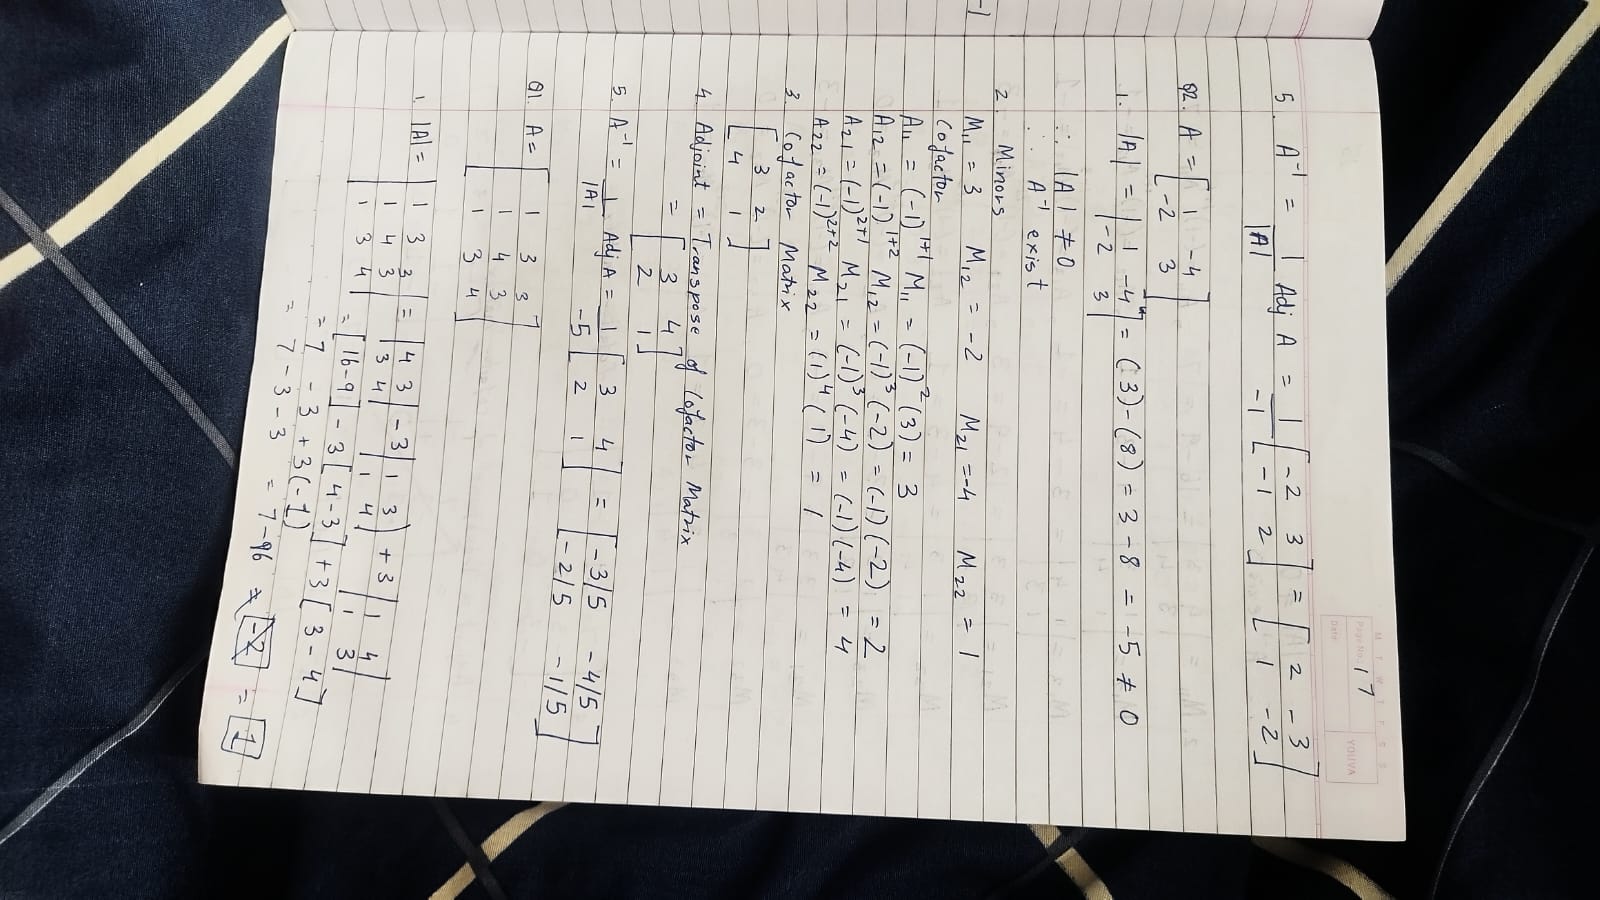 M T W T F S S
Page No.: 17
YOUVA
Date:
5. A⁻¹ = 1/|A| Adj A = 1/-1 [-2 3; -1 2] = [2 -3; 1 -2]
Q2. A = [1 -4; -2 3]
1. |A| = |1 -4; -2 3| = (3)-(8) = 3-8 = -5 ≠ 0
∴ |A| ≠ 0
∴ A⁻¹ exist
2. Minors
M₁₁ = 3 M₁₂ = -2 M₂₁ = -4 M₂₂ = 1
Cofactor
A₁₁ = (-1)¹⁺¹ M₁₁ = (-1)² (3) = 3
A₁₂ = (-1)¹⁺² M₁₂ = (-1)³ (-2) = (-1) (-2) = 2
A₂₁ = (-1)²⁺¹ M₂₁ = (-1)³ (-4) = (-1) (-4) = 4
A₂₂ = (-1)²⁺² M₂₂ = (1)⁴ (1) = 1
3. Cofactor Matrix
[3 2; 4 1]
4. Adjoint = Transpose of Cofactor Matrix
= [3 4; 2 1]
5. A⁻¹ = 1/|A| Adj A = 1/-5 [3 4; 2 1] = [-3/5 -4/5; -2/5 -1/5]
Q1. A = [1 3 3; 1 4 3; 1 3 4]
1. |A| = |1 3 3; 1 4 3; 1 3 4| = |4 3; 3 4| - 3 |1 3; 1 4| + 3 |1 4; 1 3|
= [16-9] - 3 [4-3] + 3 [3-4]
= 7 - 3 + 3(-1)
= 7 - 3 - 3 = 7-6 = -2 = 1
-1